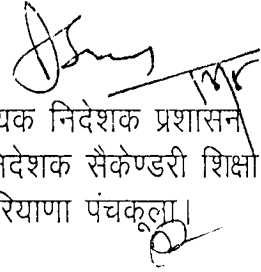 यक निदेशक प्रशासन
निदेशक सैकेण्डरी शिक्षा
रियाणा पंचकूला।